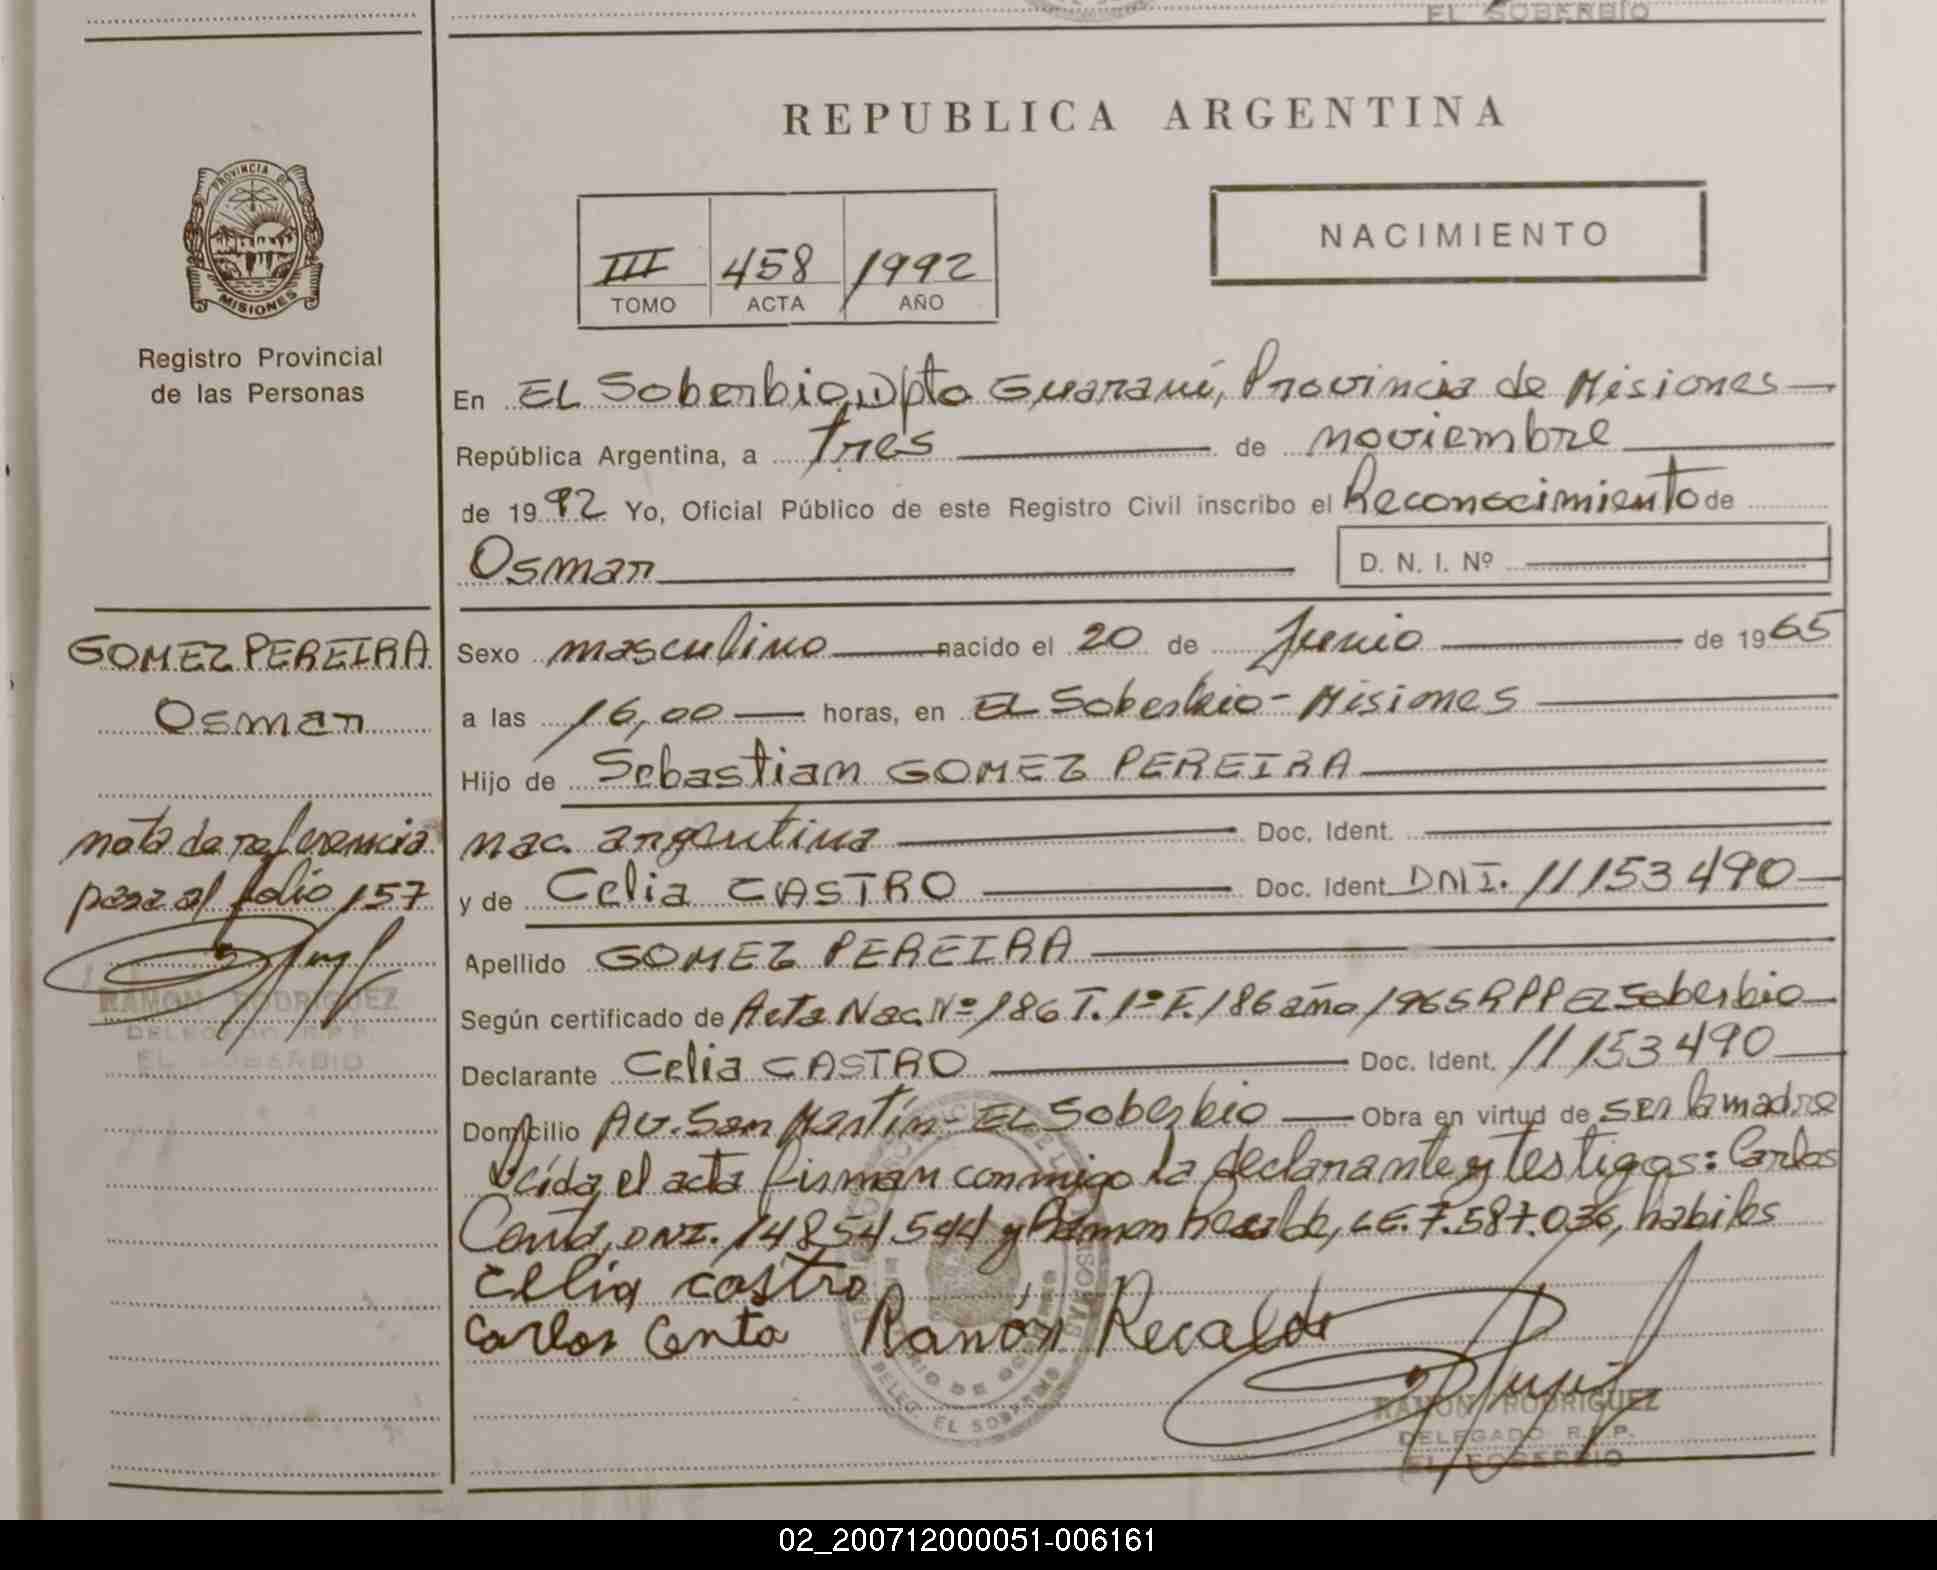 EL SOBERBIO
REPUBLICA ARGENTINA
PROVINCIA DE
MISIONES
Registro Provincial
de las Personas
NACIMIENTO
III 458 1992
TOMO ACTA AÑO
En EL Soberbio, Dpto Guaraní, Provincia de Misiones
República Argentina, a tres de noviembre
de 1992 Yo, Oficial Público de este Registro Civil inscribo el Reconocimiento de
Osmar
D. N. I. Nº
GOMEZ PEREIRA
Osmar
nota de referencia
pasa al folio 157
RAMON RODRIGUEZ
DELEGADO R.P.P.
EL SOBERBIO
Sexo masculino nacido el 20 de Junio de 1965
a las 16,00 horas, en EL Soberbio - Misiones
Hijo de Sebastian GOMEZ PEREIRA
nac. argentina Doc. Ident.
y de Celia CASTRO Doc. Ident. DNI. 11153490
Apellido GOMEZ PEREIRA
Según certificado de Acta Nac. Nº 186 T. 1º F. 186 año 1965 RPP El Soberbio
Declarante Celia CASTRO Doc. Ident. 11153490
Domicilio AV. San Martín - EL Soberbio Obra en virtud de ser la madre
el acta firman conmigo la declarante y testigos: Carlos
DNI. 14854544 y Ramon Recalde, LE. 7.587.036, habiles
Celia castro
Carlos Ramón Recalde
RAMON RODRIGUEZ
DELEGADO R.P.P.
EL SOBERBIO
DELEG. EL SOBERBIO
02_200712000051-006161